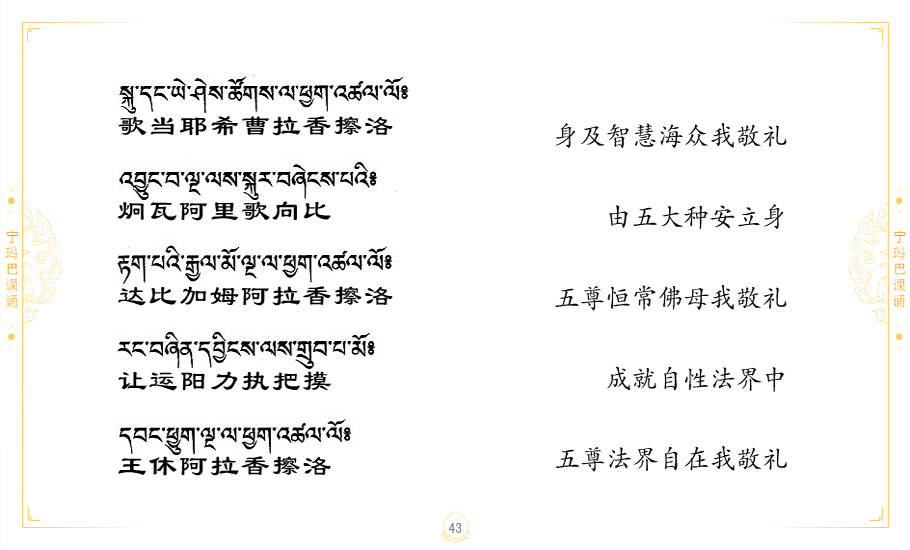 སྐུ་དང་ཡེ་ཤེས་ཚོགས་ལ་ཕྱག་འཚལ་ལོ༔
歌当耶希曹拉香擦洛
身及智慧海众我敬礼
འབྱུང་བ་ལྔ་ལས་སྐུར་བཞེངས་པའི༔
炯瓦阿里歌向比
由五大种安立身
རྟག་པའི་རྒྱལ་མོ་ལྔ་ལ་ཕྱག་འཚལ་ལོ༔
达比加姆阿拉香擦洛
五尊恒常佛母我敬礼
རང་བཞིན་དབྱིངས་ལས་གྲུབ་པ་མོ༔
让运阳力执把摸
成就自性法界中
དབང་ཕྱུག་ལྔ་ལ་ཕྱག་འཚལ་ལོ༔
王休阿拉香擦洛
五尊法界自在我敬礼
宁玛巴课诵
宁玛巴课诵
43